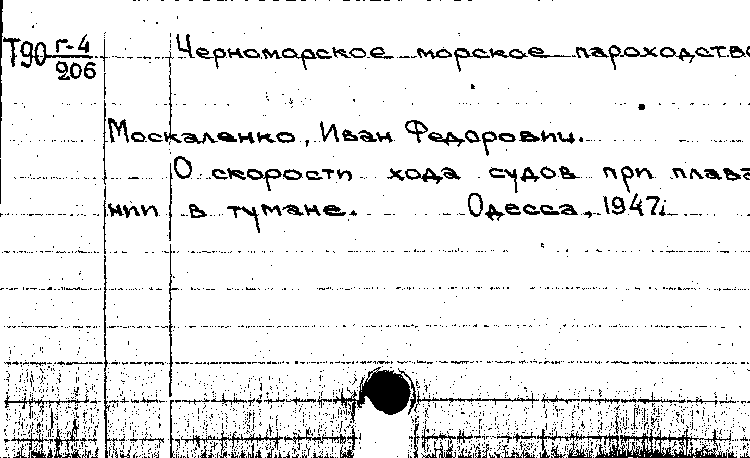 Т90 г-4/206 Черноморское морское пароходство
Москаленко, Иван Федорович.
О скорости хода судов при плава
нии в тумане. Одесса, 1947.